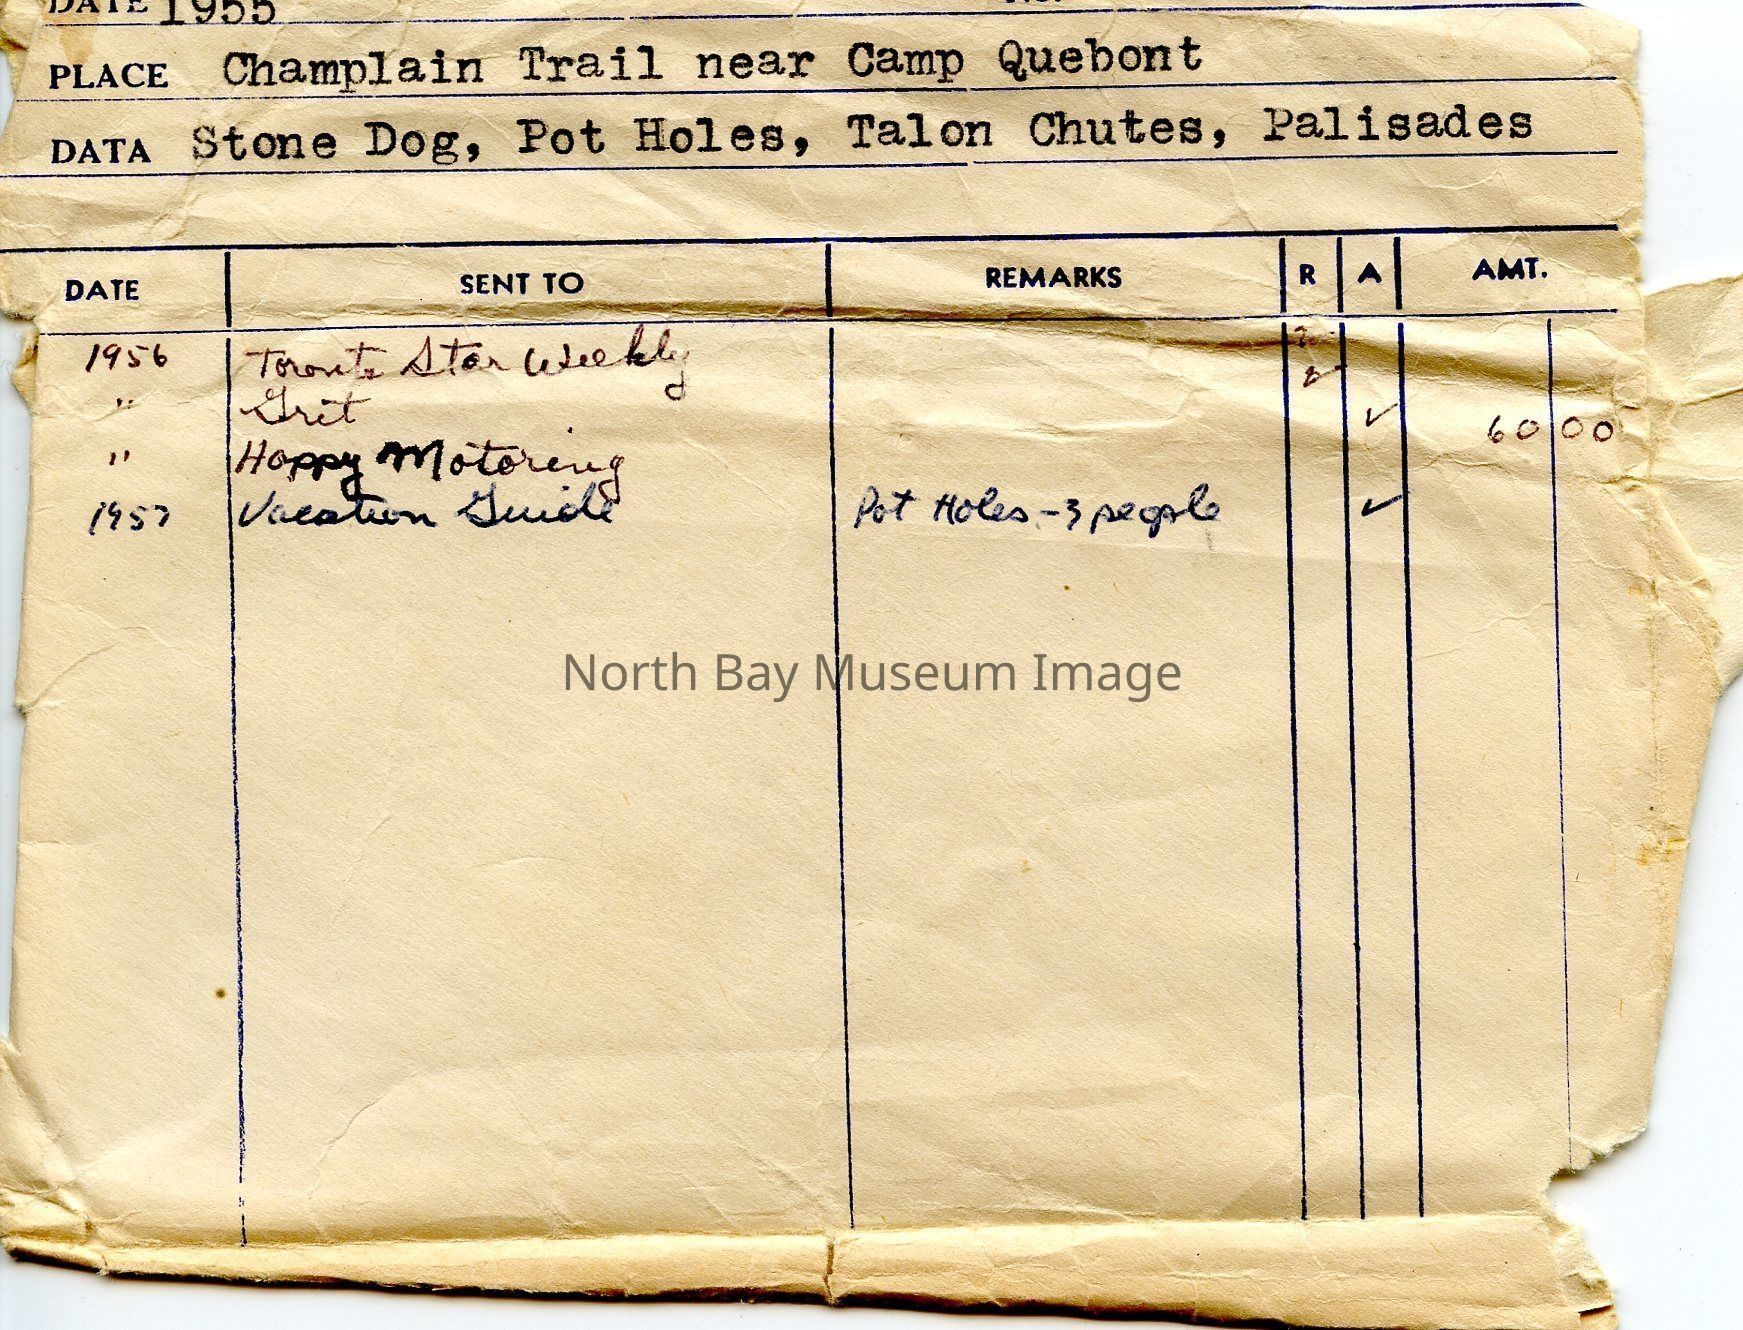 DATE 1955
PLACE Champlain Trail near Camp Quebont
DATA Stone Dog, Pot Holes, Talon Chutes, Palisades
DATE SENT TO REMARKS R A AMT.
1956 Toronto Star Weekly
" Grit ✓ 60 00
" Happy Motoring
1957 Vacation Guide Pot Holes - 3 people ✓
North Bay Museum Image